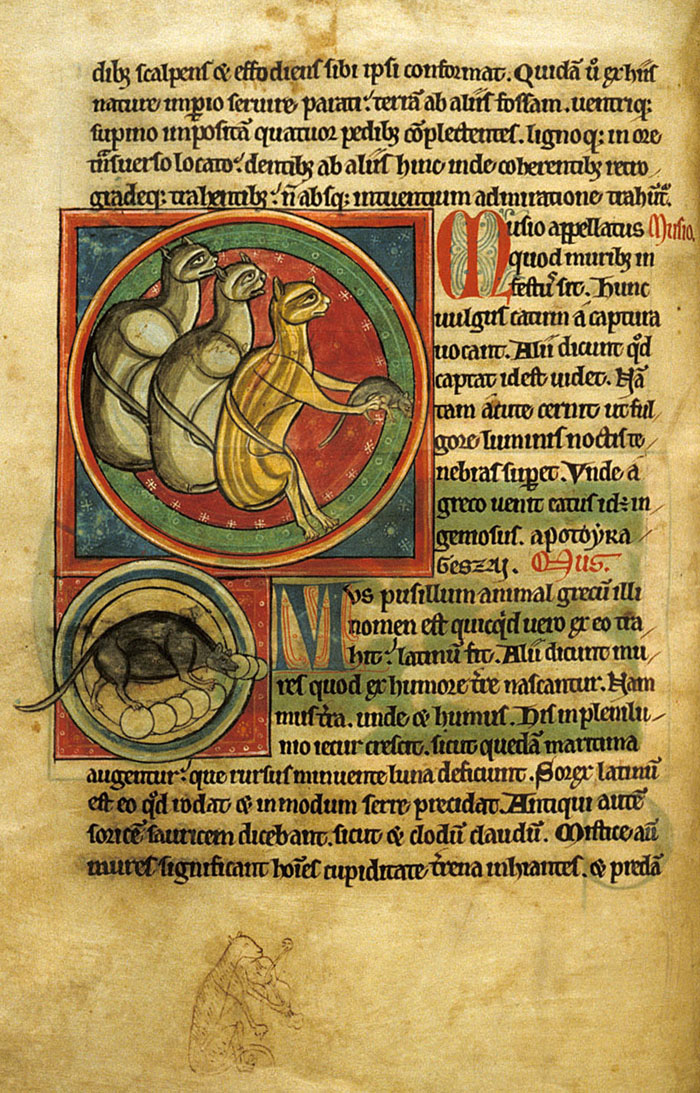 dib; scalpens & effodiens sibi ipsi conformat. Quidā ů ex hiis
nature imp̱io seruire parati. terrā ab aliis fossam. uentriq;
supino impositā quatuor pedib; cōplectentes. lignoq; in ore
tͣnsuerso locato. dentib; ab aliis hinc inde coherentib; retro
gradeq; trahentib;. ñ absq; intuentium admiratione trahūt̾.
Musio appellatus Musio.
quod murib; in
festus sit. Hunc
uulgus catum a captura
uocant. Alii dicunt qd̓
captat id est uidet. Nā
tam acute cernit ut ful
gore luminis noctis te
nebras sup̱et. Vnde a
greco uenit catus id ÷ in
geniosus.
Mus.
Mus pusillum animal grecū illi
nomen est quicq̓d uero ex eo tra
hit. latinum fit. Alii dicunt mu
res quod ex humore tr̄e nascantur. Nam
mus tr̄a. unde & humus. His in plenilu
nio iecur crescit. sicut quedā maritima
augentur. que rursus minuente luna deficiunt. Sorex latinū
est eo qd̓ rodat & in modum serre precidat. Antiqui autē
soricē sauricem dicebant. sicut & clodū claudū. Mistice aū
mures significant hoīes cupiditate tr̄ena inhiantes. & predā